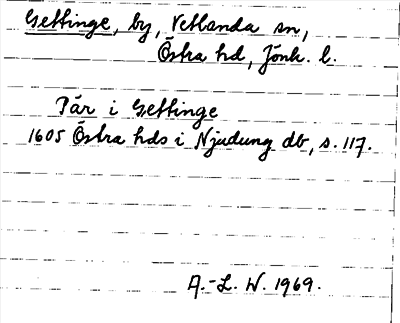 Gettinge, by, Vetlanda sn,
Östra hd, Jönk. l.
Pär i Gettinge
1605 Östra hds i Njudung db, s. 117.
A.-L. W. 1969.